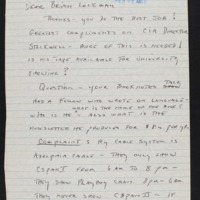 Dear Brian Lockman
Thanks - you do the best job!
Greatest compliments on CIA Director
Stockwell - more of this is needed!
Is his tape available for university
? 
Question - your Booknotes talk
had a fellow who wrote on language -
what is the name of the book &
who is he - also what is the
newsletter he produces for $
Complaint: My cable system is
Adelphia Cable - they only show
CSPAN I from 6 am to 8 pm -
they show Playboy chan. 8 pm - 6 am
They never show CSPAN II - it